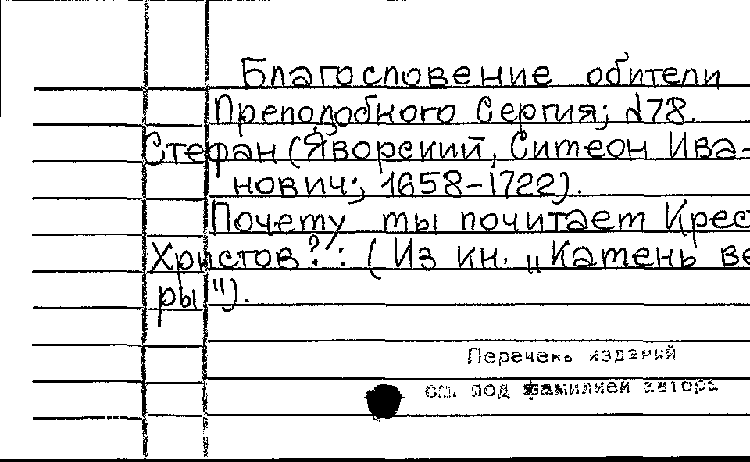 Благословение обители
Преподобного Сергия; 178.
Стефан (Яворский, Симеон Ива-
нович; 1658-1722).
Почему мы почитаем Крес
Христов?: (Из кн. "Камень ве
ры").
Перечень изданий
см. под фамилией автора